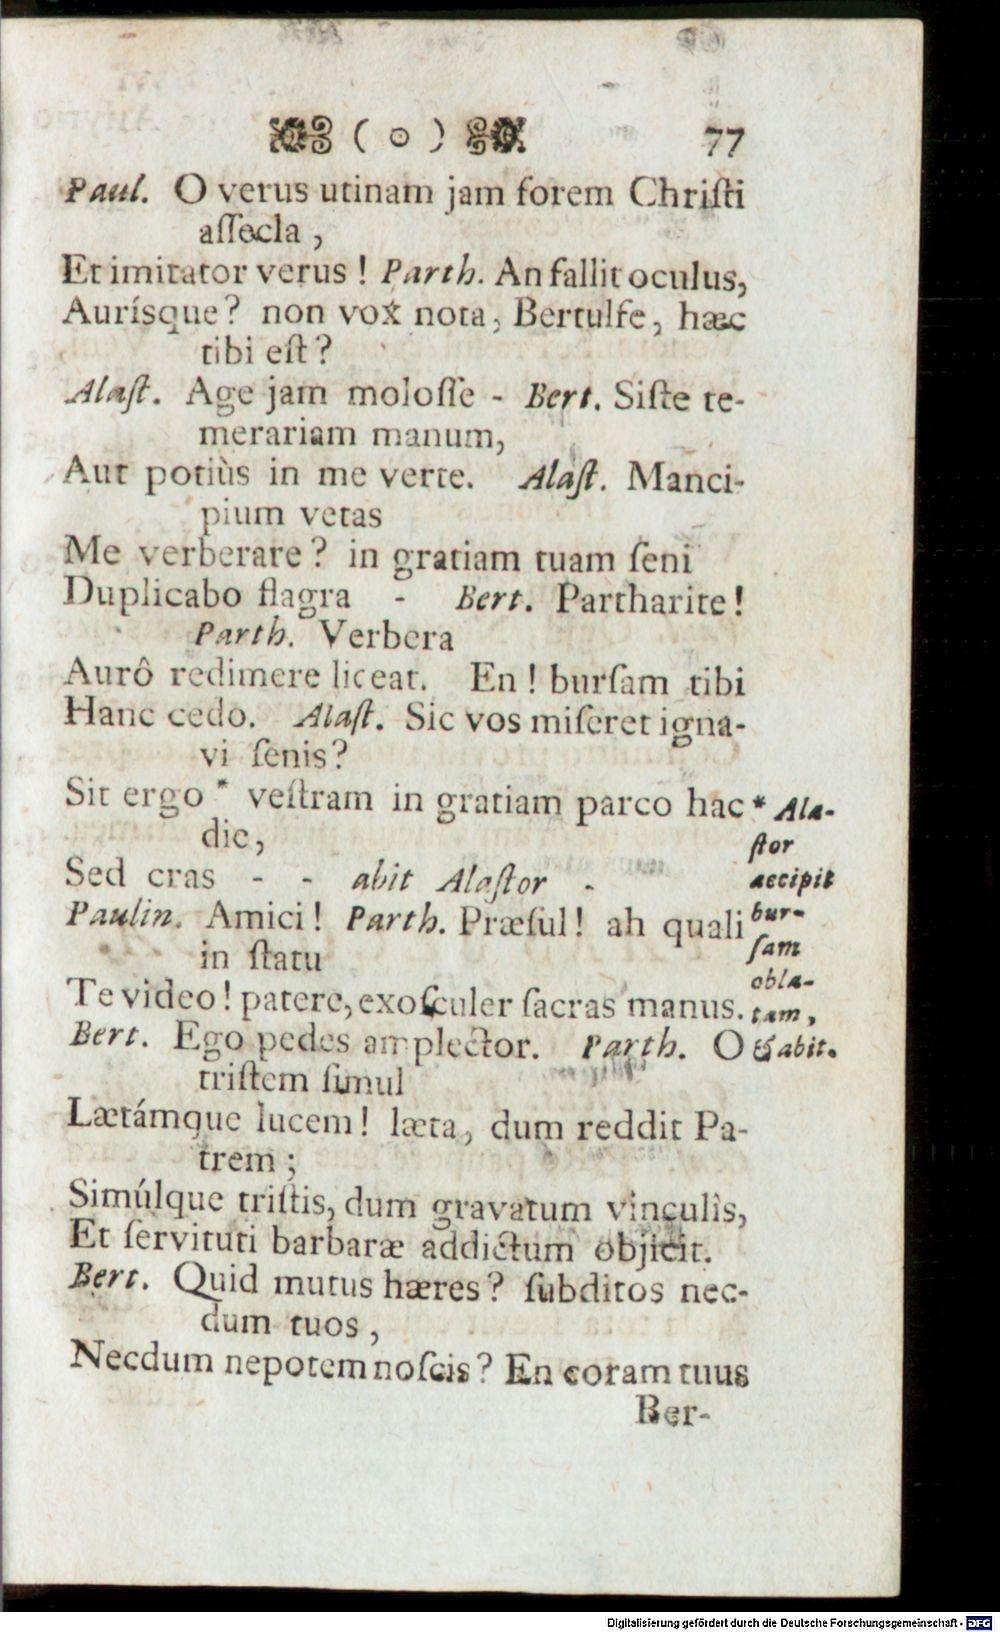 ( ʘ ) 77
Paul. O verus utinam jam forem Chriſti
aſſecla ,
Et imitator verus ! Parth. An fallit oculus,
Aurísque? non vox nota, Bertulfe, hæc
tibi eſt ?
Alaſt. Age jam moloſſe - Bert. Siſte te-
merariam manum,
Aut potiùs in me verte. Alaſt. Manci-
pium vetas
Me verberare? in gratiam tuam ſeni
Duplicabo flagra - Bert. Partharite!
Parth. Verbera
Aurô redimere liceat. En ! burſam tibi
Hanc cedo. Alaſt. Sic vos miſeret igna-
vi ſenis?
Sit ergo * veſtram in gratiam parco hac
die,
Sed cras - - abit Alaſtor -
* Ala-
ſtor
accipit
bur-
ſam
obla-
tam,
& abit.
Paulin. Amici! Parth. Præſul! ah quali
in ſtatu
Te video! patere, exoſculer ſacras manus.
Bert. Ego pedes amplector. Parth. O
triſtem ſimul
Lætámque lucem! læta, dum reddit Pa-
trem ;
Simúlque triſtis, dum gravatum vinculis,
Et ſervituti barbaræ addictum objicit.
Bert. Quid mutus hæres? ſubditos nec-
dum tuos ,
Necdum nepotem noſcis? En coram tuus
Ber-
Digitalisierung gefördert durch die Deutsche Forschungsgemeinschaft - DFG